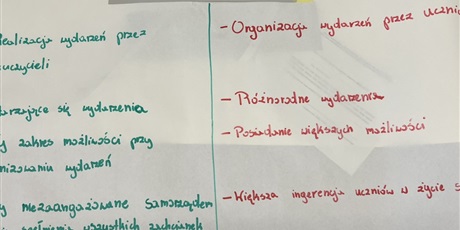 ealizacja wydarzeń przez
uczycieli
arzające się wydarzenia
y zakres możliwości przy
nizowaniu wydarzeń
y niezaangażowane Samorządem
wszystkich zachcianek
- Organizacja wydarzeń przez uczni
- Różnorodne wydarzenia
- Posiadanie większych możliwości
- Większa ingerencja uczniów w życie s